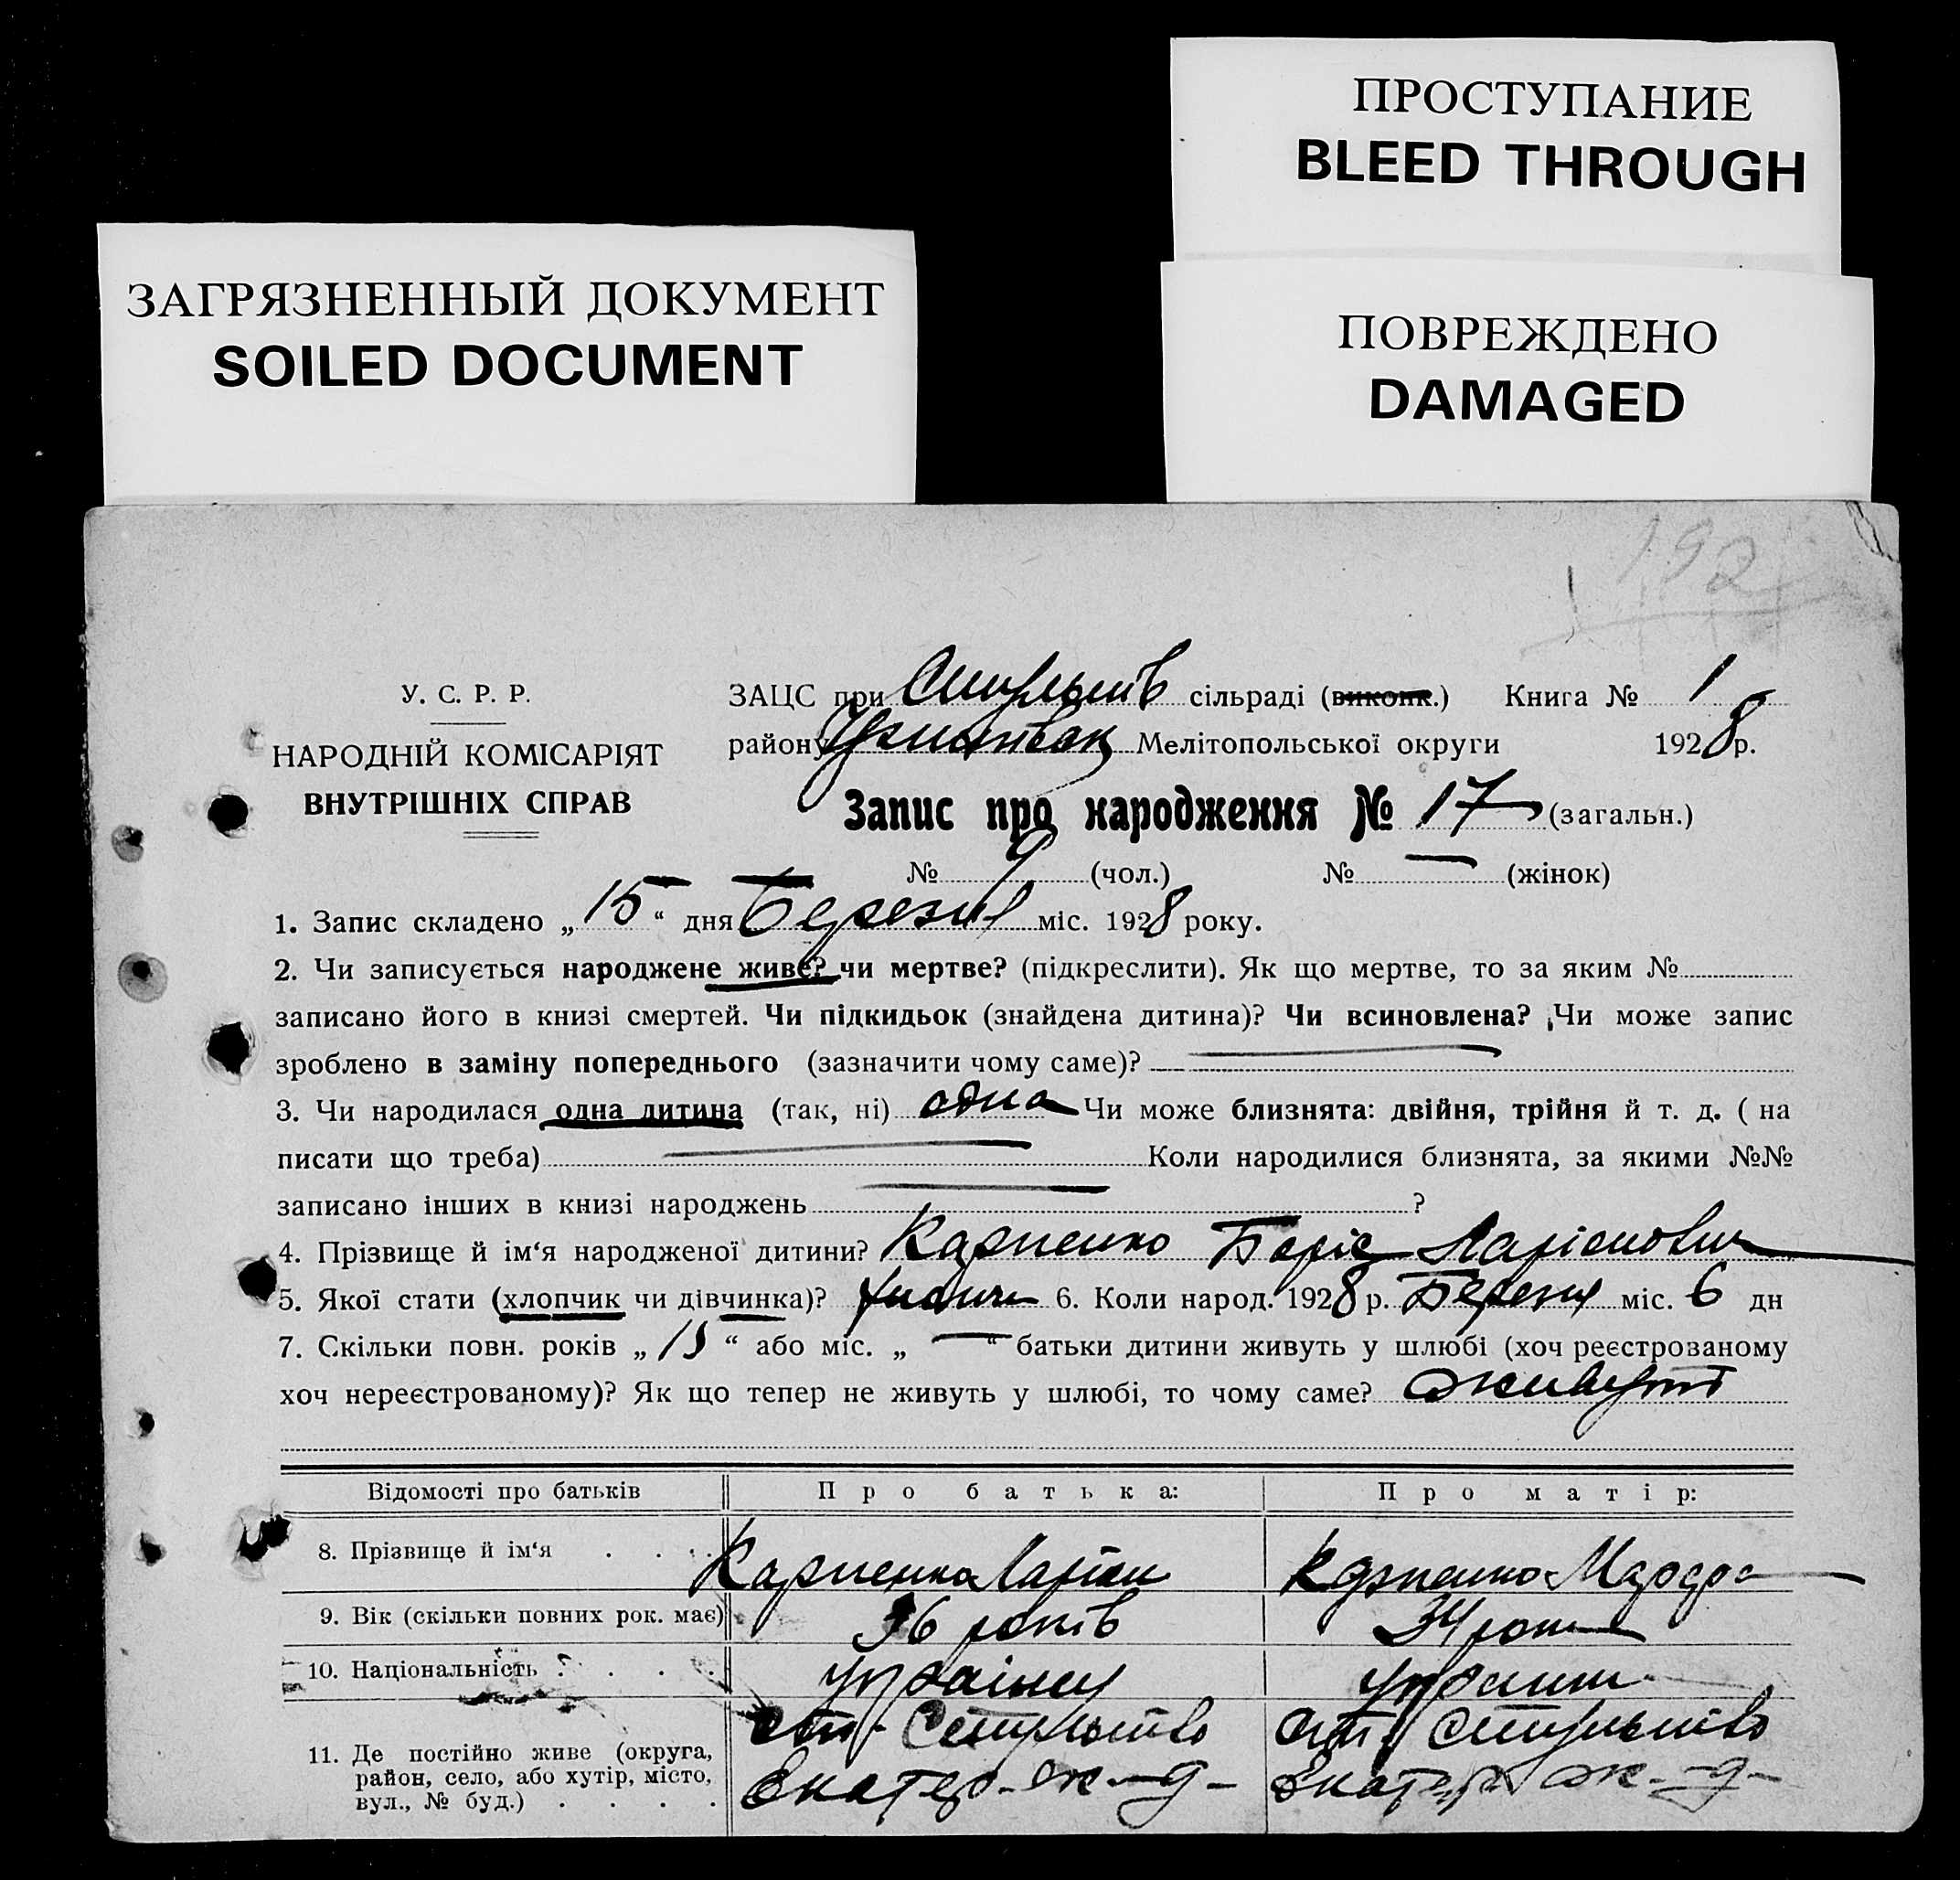 ПРОСТУПАНИЕ
BLEED THROUGH
ЗАГРЯЗНЕННЫЙ ДОКУМЕНТ
SOILED DOCUMENT
ПОВРЕЖДЕНО
DAMAGED
192
У. С. Р. Р.
НАРОДНІЙ КОМІСАРІЯТ
ВНУТРІШНІХ СПРАВ
ЗАЦС при сільраді (виконк.) Книга № 1
району Мелітопольської округи 1928 р.
Запис про народження № 17 (загальн.)
№ 9 (чол.) № — (жінок)
1. Запис складено „15“ дня Березня міс. 1928 року.
2. Чи записується народжене живе? чи мертве? (підкреслити). Як що мертве, то за яким №
записано його в книзі смертей. Чи підкидьок (знайдена дитина)? Чи всиновлена? Чи може запис
зроблено в заміну попереднього (зазначити чому саме)? —
3. Чи народилася одна дитина (так, ні) одна Чи може близнята: двійня, трійня й т. д. ( на
писати що треба) — Коли народилися близнята, за якими №№
записано інших в книзі народжень — ?
4. Прізвище й ім‘я народженої дитини? Карпенко Боріс Ларіонович
5. Якої стати (хлопчик чи дівчинка)? 6. Коли народ. 1928 р. Березня міс. 6 дн
7. Скільки повн. років „15“ або міс. „—“ батьки дитини живуть у шлюбі (хоч реєстрованому
хоч нереєстрованому)? Як що тепер не живуть у шлюбі, то чому саме? живуть
Відомості про батьків Про батька: Про матір:
8. Прізвище й ім‘я . . . . Карпенко Ларіон Карпенко
9. Вік (скільки повних рок. має) 36 років 34 роки
10. Національність . . . . українец україн
11. Де постійно живе (округа,
район, село, або хутір, місто,
вул., № буд.) . . . .
ст.
Екатер. ж-д-
ст.
Екатер ж-д-